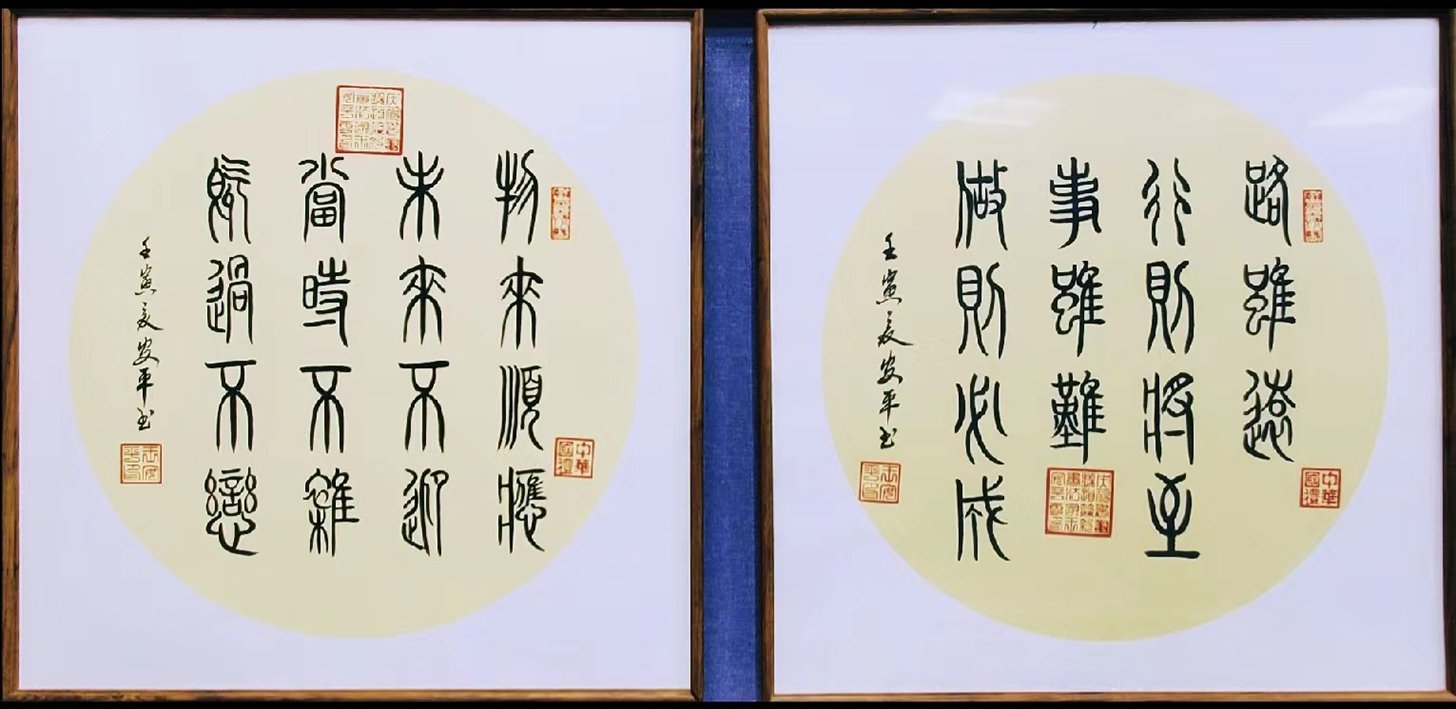 物來順應
未來不迎
當時不雜
既過不戀
壬寅夏安平书
中華國禮
路雖遠
行則將至
事雖難
做則必成
壬寅夏安平书
中華國禮